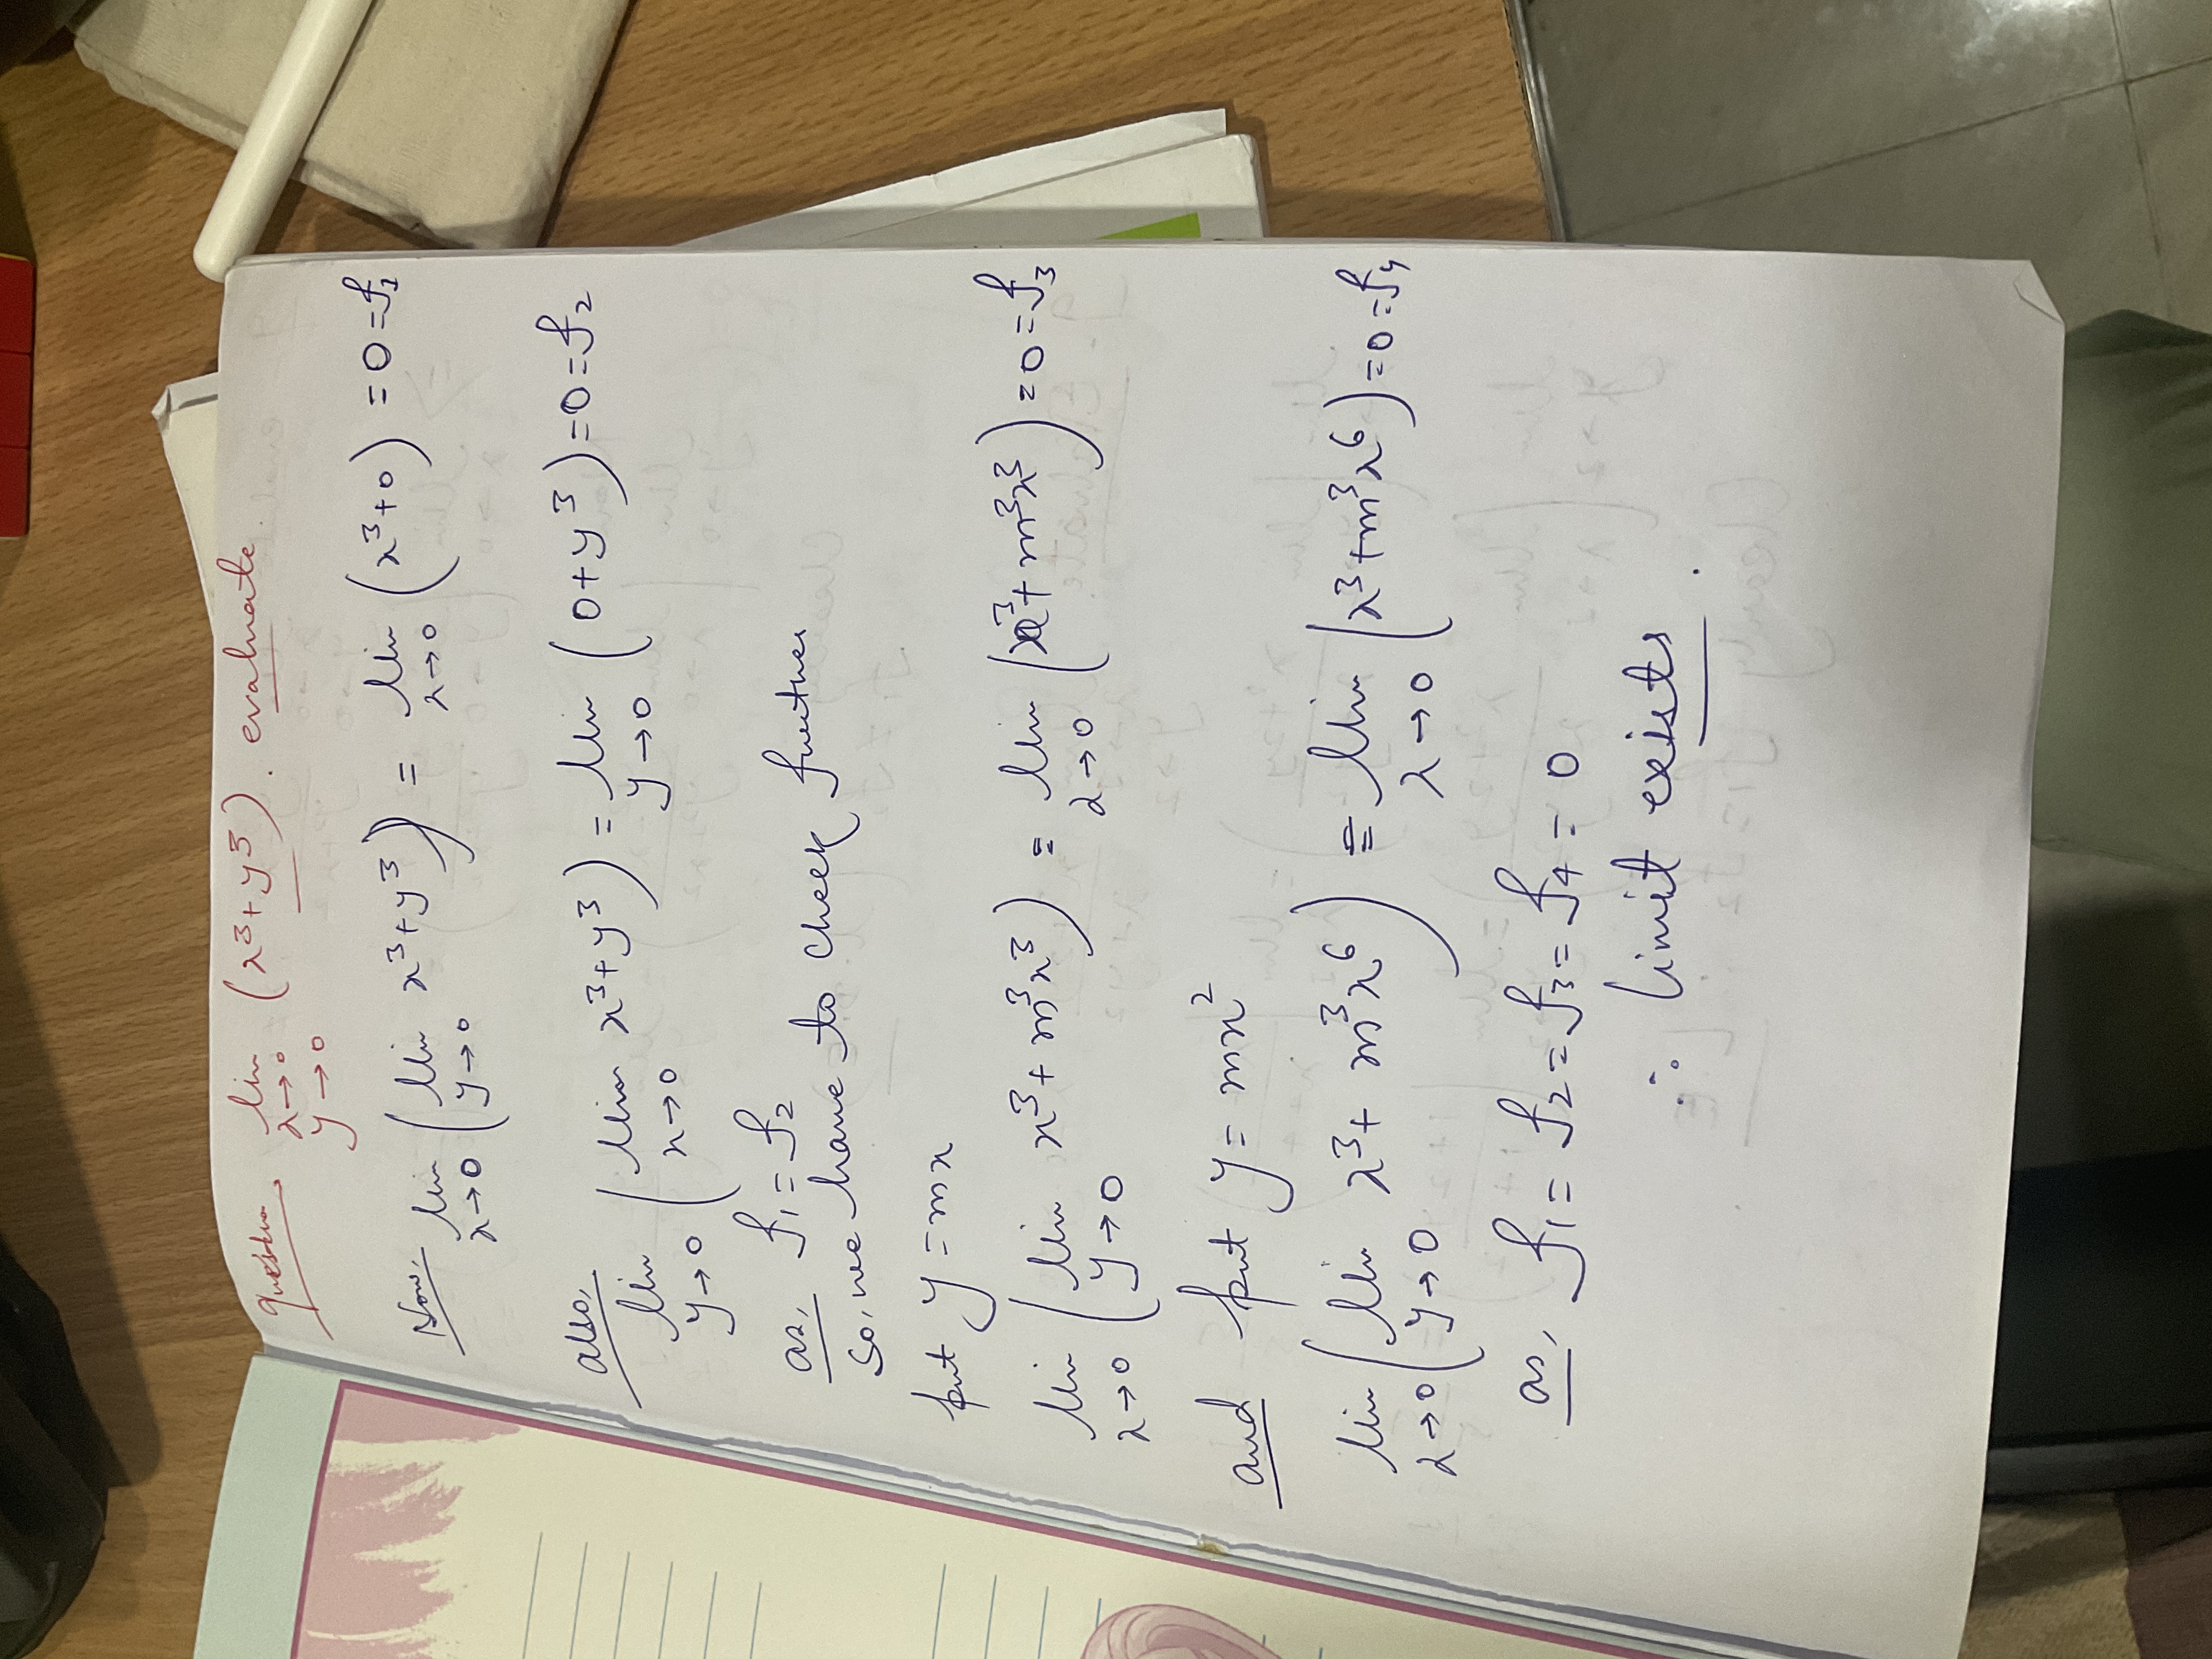 question lim x→0 y→0 (x³+y³). evaluate.
Now, lim x→0 (lim y→0 x³+y³) = lim x→0 (x³+0) = 0 = f₁
also, lim y→0 (lim x→0 x³+y³) = lim y→0 (0+y³) = 0 = f₂
as, f₁ = f₂
so, we have to check further
put y = mx
lim x→0 (lim y→0 x³+m³x³) = lim x→0 (x³+m³x³) = 0 = f₃
and put y = mx²
lim x→0 (lim y→0 x³+m³x⁶) = lim x→0 (x³+m³x⁶) = 0 = f₄
as, f₁ = f₂ = f₃ = f₄ = 0
∴ limit exists.